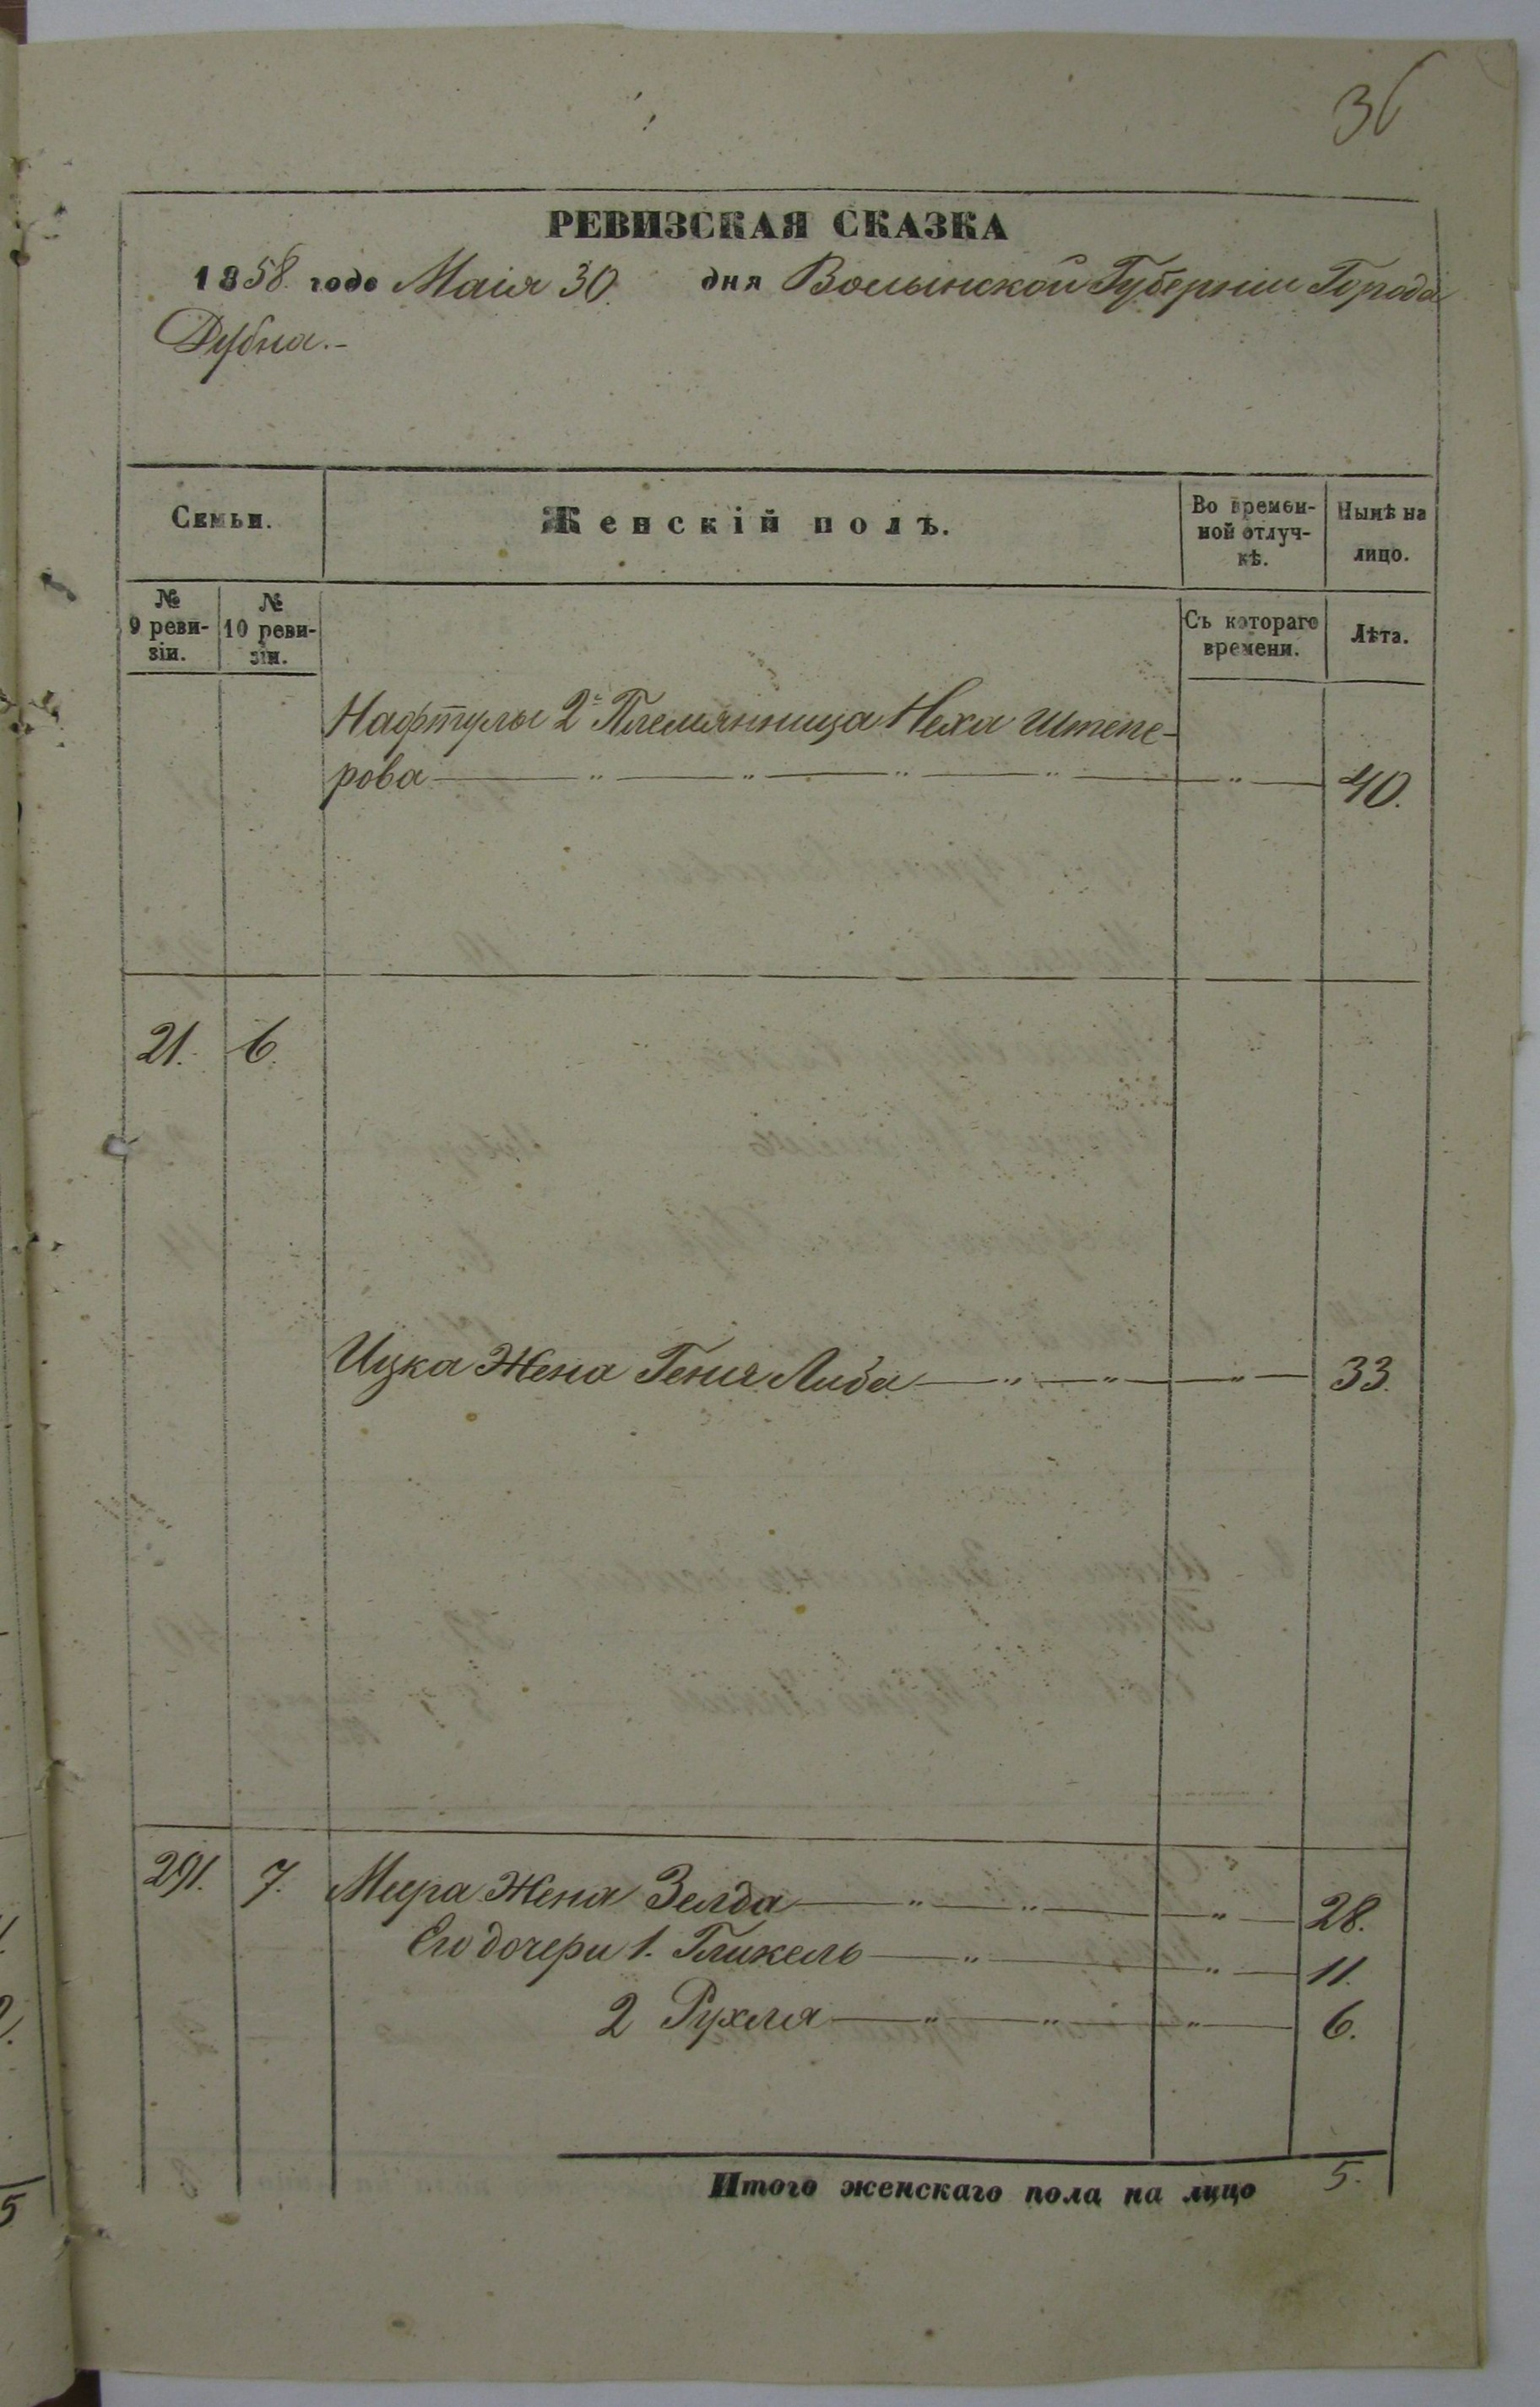 36
РЕВИЗСКАЯ СКАЗКА
1858 года Маія 30. дня Волынской Губерніи Города
Дубна.-
Семьи.
Женскій полъ.
Во времен-
ной отлуч-
кѣ.
Нынѣ на
лицо.
№
9 реви-
зіи.
№
10 реви-
зіи.
Съ котораго
времени.
Лѣта.
Нафтулы 2й Племянница Неха Штепе-
рова — " — " — " — " — " — 40.
21. 6.
Ицка Жена Геня Либа — " — " — " — 33.
291. 7. Мира Жена Зелда — " — " — " — 28.
Его дочери 1. Гликель — " — " — 11.
2 Рухля — " — " — " — 6.
Итого женскаго пола на лицо 5.